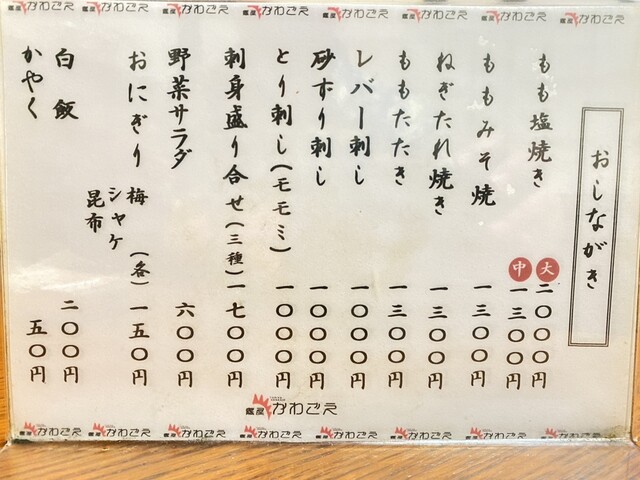 おしながき
もも塩焼き 大 二〇〇〇円
中 一三〇〇円
ももみそ焼 一三〇〇円
ねぎたれ焼き 一三〇〇円
ももたたき 一三〇〇円
レバー刺し 一〇〇〇円
砂ずり刺し 一〇〇〇円
とり刺し(モモミ) 一〇〇〇円
刺身盛り合せ(三種) 一七〇〇円
野菜サラダ 六〇〇円
おにぎり 梅 (各) 一五〇円
シャケ
昆布
白飯 二〇〇円
かやく 五〇円
かわごえ